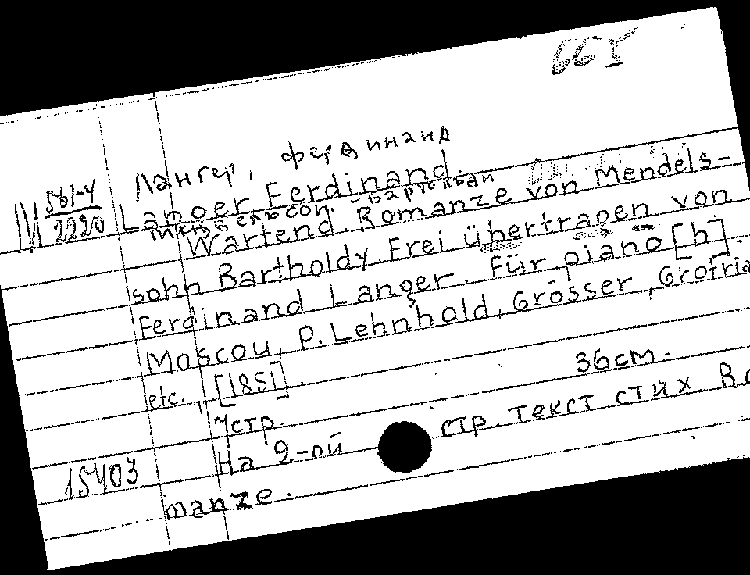 66
Лангер, Фердинанд
Ш 561-4
2220
Langer Ferdinand.
Мендельсон-Бартольди
Wartend. Romanze von Mendels-
sohn Bartholdy. Frei übertragen von
Ferdinand Langer. Für piano [h]
Moscou, P. Lehnhold, Grösser, Grotria
etc., [1851].
7 стр. 36 см.
На 2-ой стр. текст стих Ro
manze.
15403